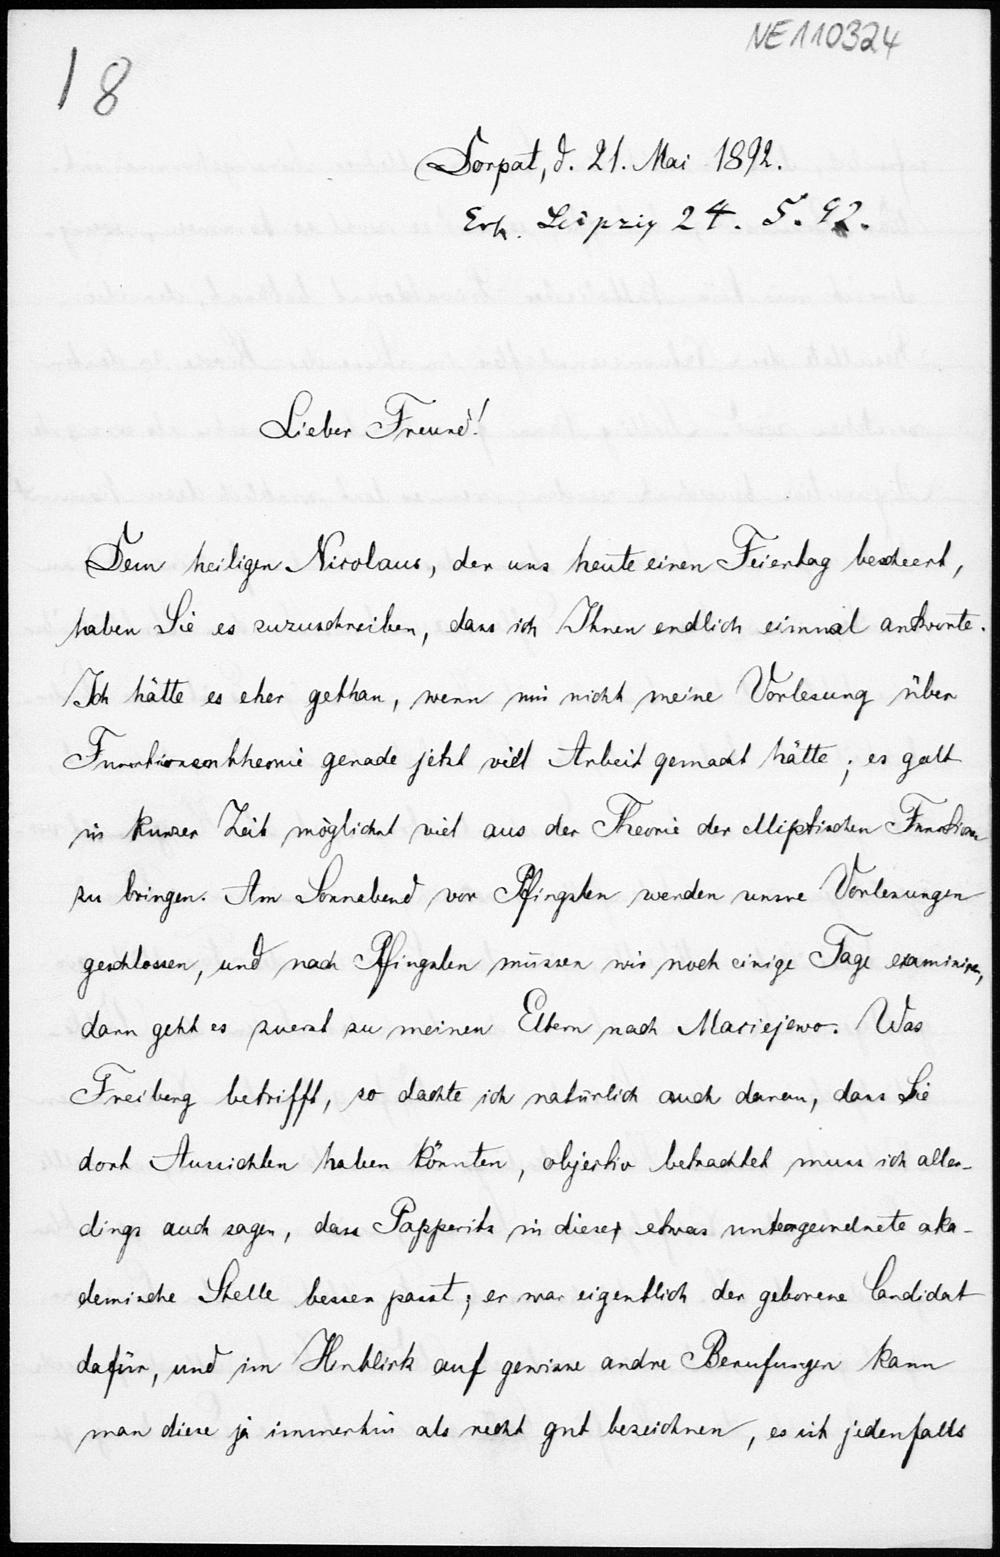 NE110324
18
Dorpat, d. 21. Mai 1892.
Erh. Leipzig 24. 5. 92.
Lieber Freund!
Dem heiligen Nicolaus, der uns heute einen Feiertag bescheert,
haben Sie es zuzuschreiben, dass ich Ihnen endlich einmal antworte.
Ich hätte es eher gethan, wenn mir nicht meine Vorlesung über
Functionentheorie gerade jetzt viel Arbeit gemacht hätte; es galt
in kurzer Zeit möglichst viel aus der Theorie der elliptischen Functionen
zu bringen. Am Sonnabend vor Pfingsten werden unsre Vorlesungen
geschlossen, und nach Pfingsten müssen wir noch einige Tage examiniren,
dann geht es zuerst zu meinen Eltern nach Maciejewo. Was
Freiberg betrifft, so dachte ich natürlich auch daran, dass Sie
dort Aussichten haben könnten, objectiv betrachtet muss ich aller-
dings auch sagen, dass Papperitz in diese etwas untergeordnete aka-
demische Stelle besser passt; er war eigentlich der geborene Candidat
dafür, und im Hinblick auf gewisse andre Berufungen kann
man diese ja immerhin als recht gut bezeichnen, es ist jedenfalls